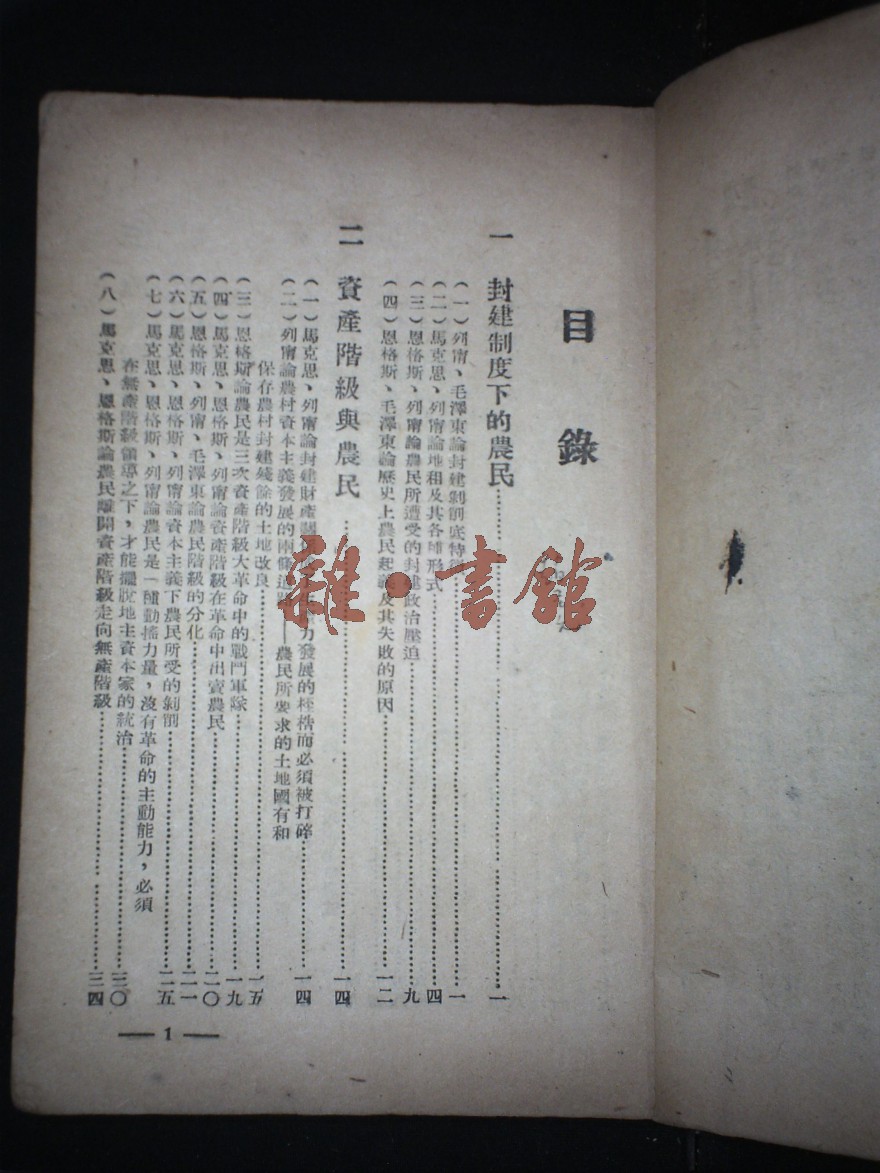 目錄
一 封建制度下的農民……一
(一)列甯、毛澤東論封建剝削底特……一
(二)馬克思、列甯論地租及其各種形式……四
(三)恩格斯、列甯論農民所遭受的封建政治壓迫……九
(四)恩格斯、毛澤東論歷史上農民起義及其失敗的原因……一二
二 資產階級與農民……一四
(一)馬克思、列甯論封建財產關力發展的桎梏而必須被打碎……一四
(二)列甯論農村資本主義發展的兩條道路——農民所要求的土地國有和
保存農村封建殘餘的土地改良……一五
(三)恩格斯論農民是三次資產階級大革命中的戰鬥軍隊……一九
(四)馬克思、恩格斯、列甯論資產階級在革命中出賣農民……二〇
(五)恩格斯、列甯、毛澤東論農民階級的分化……二一
(六)馬克思、恩格斯、列甯論資本主義下農民所受的剝削……二五
(七)馬克思、恩格斯、列甯論農民是一種動搖力量,沒有革命的主動能力,必須
在無產階級領導之下,才能擺脫地主資本家的統治……三〇
(八)馬克思、恩格斯論農民離開資產階級走向無產階級……三四
— 1 —
雜·書館